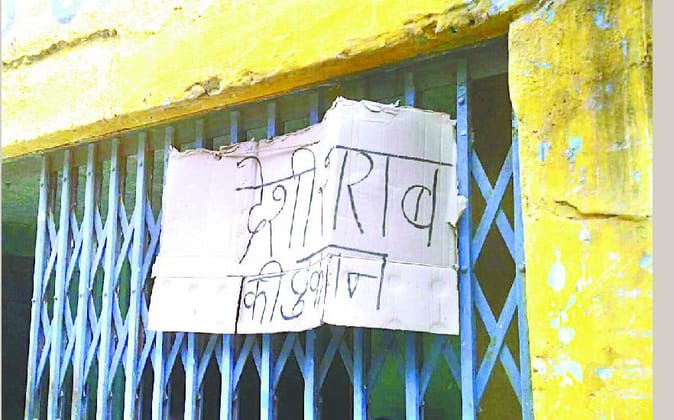 देशी शराब
की दुकान